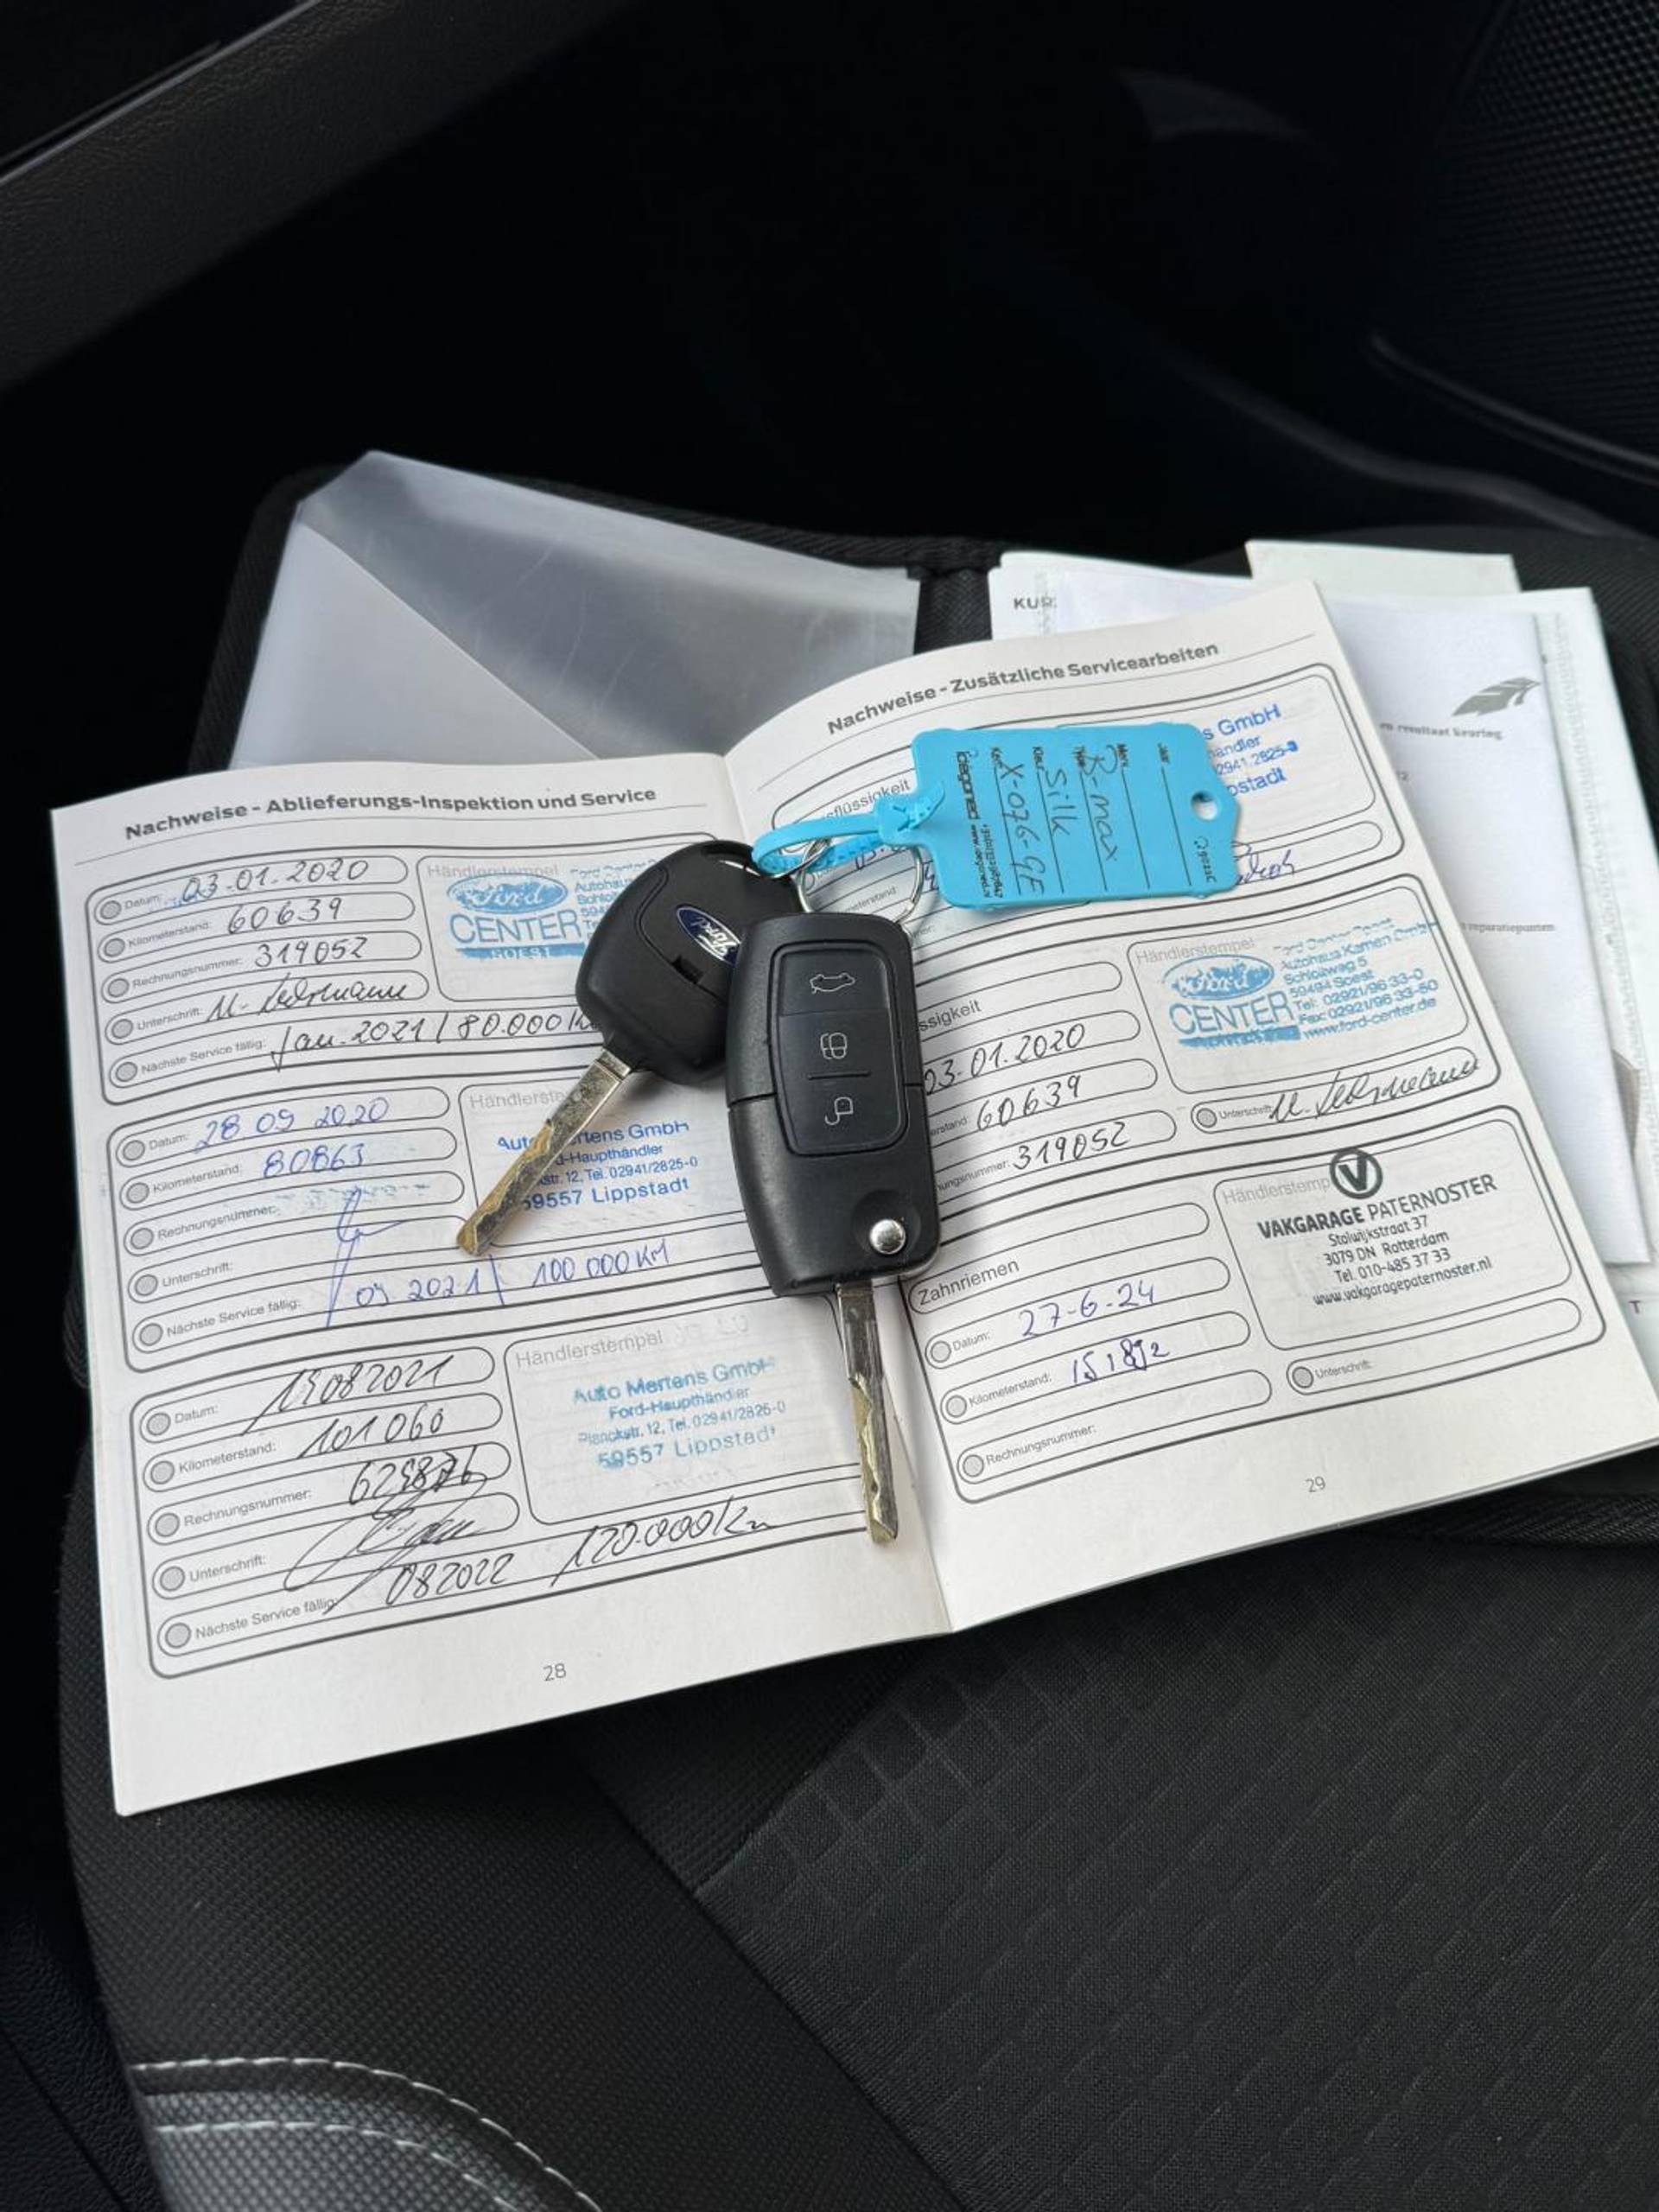 Nachweise - Ablieferungs-Inspektion und Service
Datum: 03.01.2020
Kilometerstand: 60639
Rechnungsnummer: 319052
Unterschrift:
Nächste Service fällig: Jan. 2021 / 80.000
Händlerstempel
Ford
CENTER
Datum: 28 09 2020
Kilometerstand: 80863
Rechnungsnummer:
Unterschrift:
Nächste Service fällig: 09 2021 100 000 KM
Mertens GmbH
d-Haupthändler
str. 12, Tel. 02941/2825-0
59557 Lippstadt
Datum: 19082021
Kilometerstand: 101060
Rechnungsnummer:
Unterschrift:
Nächste Service fällig: 082022 120.000 Km
Händlerstempel
Auto Mertens GmbH
Ford-Haupthändler
Planckstr. 12, Tel. 02941/2825-0
59557 Lippstadt
28
Ford
KUR
Nachweise - Zusätzliche Servicearbeiten
sflüssigkeit
s GmbH
händler
pstadt
B-max
Silk
X-076-GF
ssigkeit
03.01.2020
60639
319052
Händlerstempel
Ford
CENTER
Autohaus Kamen GmbH
Schloitweg 5
59494 Soest
Tel: 02921/96 33-0
Fax: 02921/96 33-50
www.ford-center.de
Unterschrift:
Zahnriemen
Datum: 27-6-24
Kilometerstand:
Rechnungsnummer:
Händlerstemp
V
VAKGARAGE PATERNOSTER
Stolwijkstraat 37
3079 DN Rotterdam
Tel. 010-485 37 33
www.vakgaragepaternoster.nl
Unterschrift:
29
en resultaat keuring
reparatiepunten
T